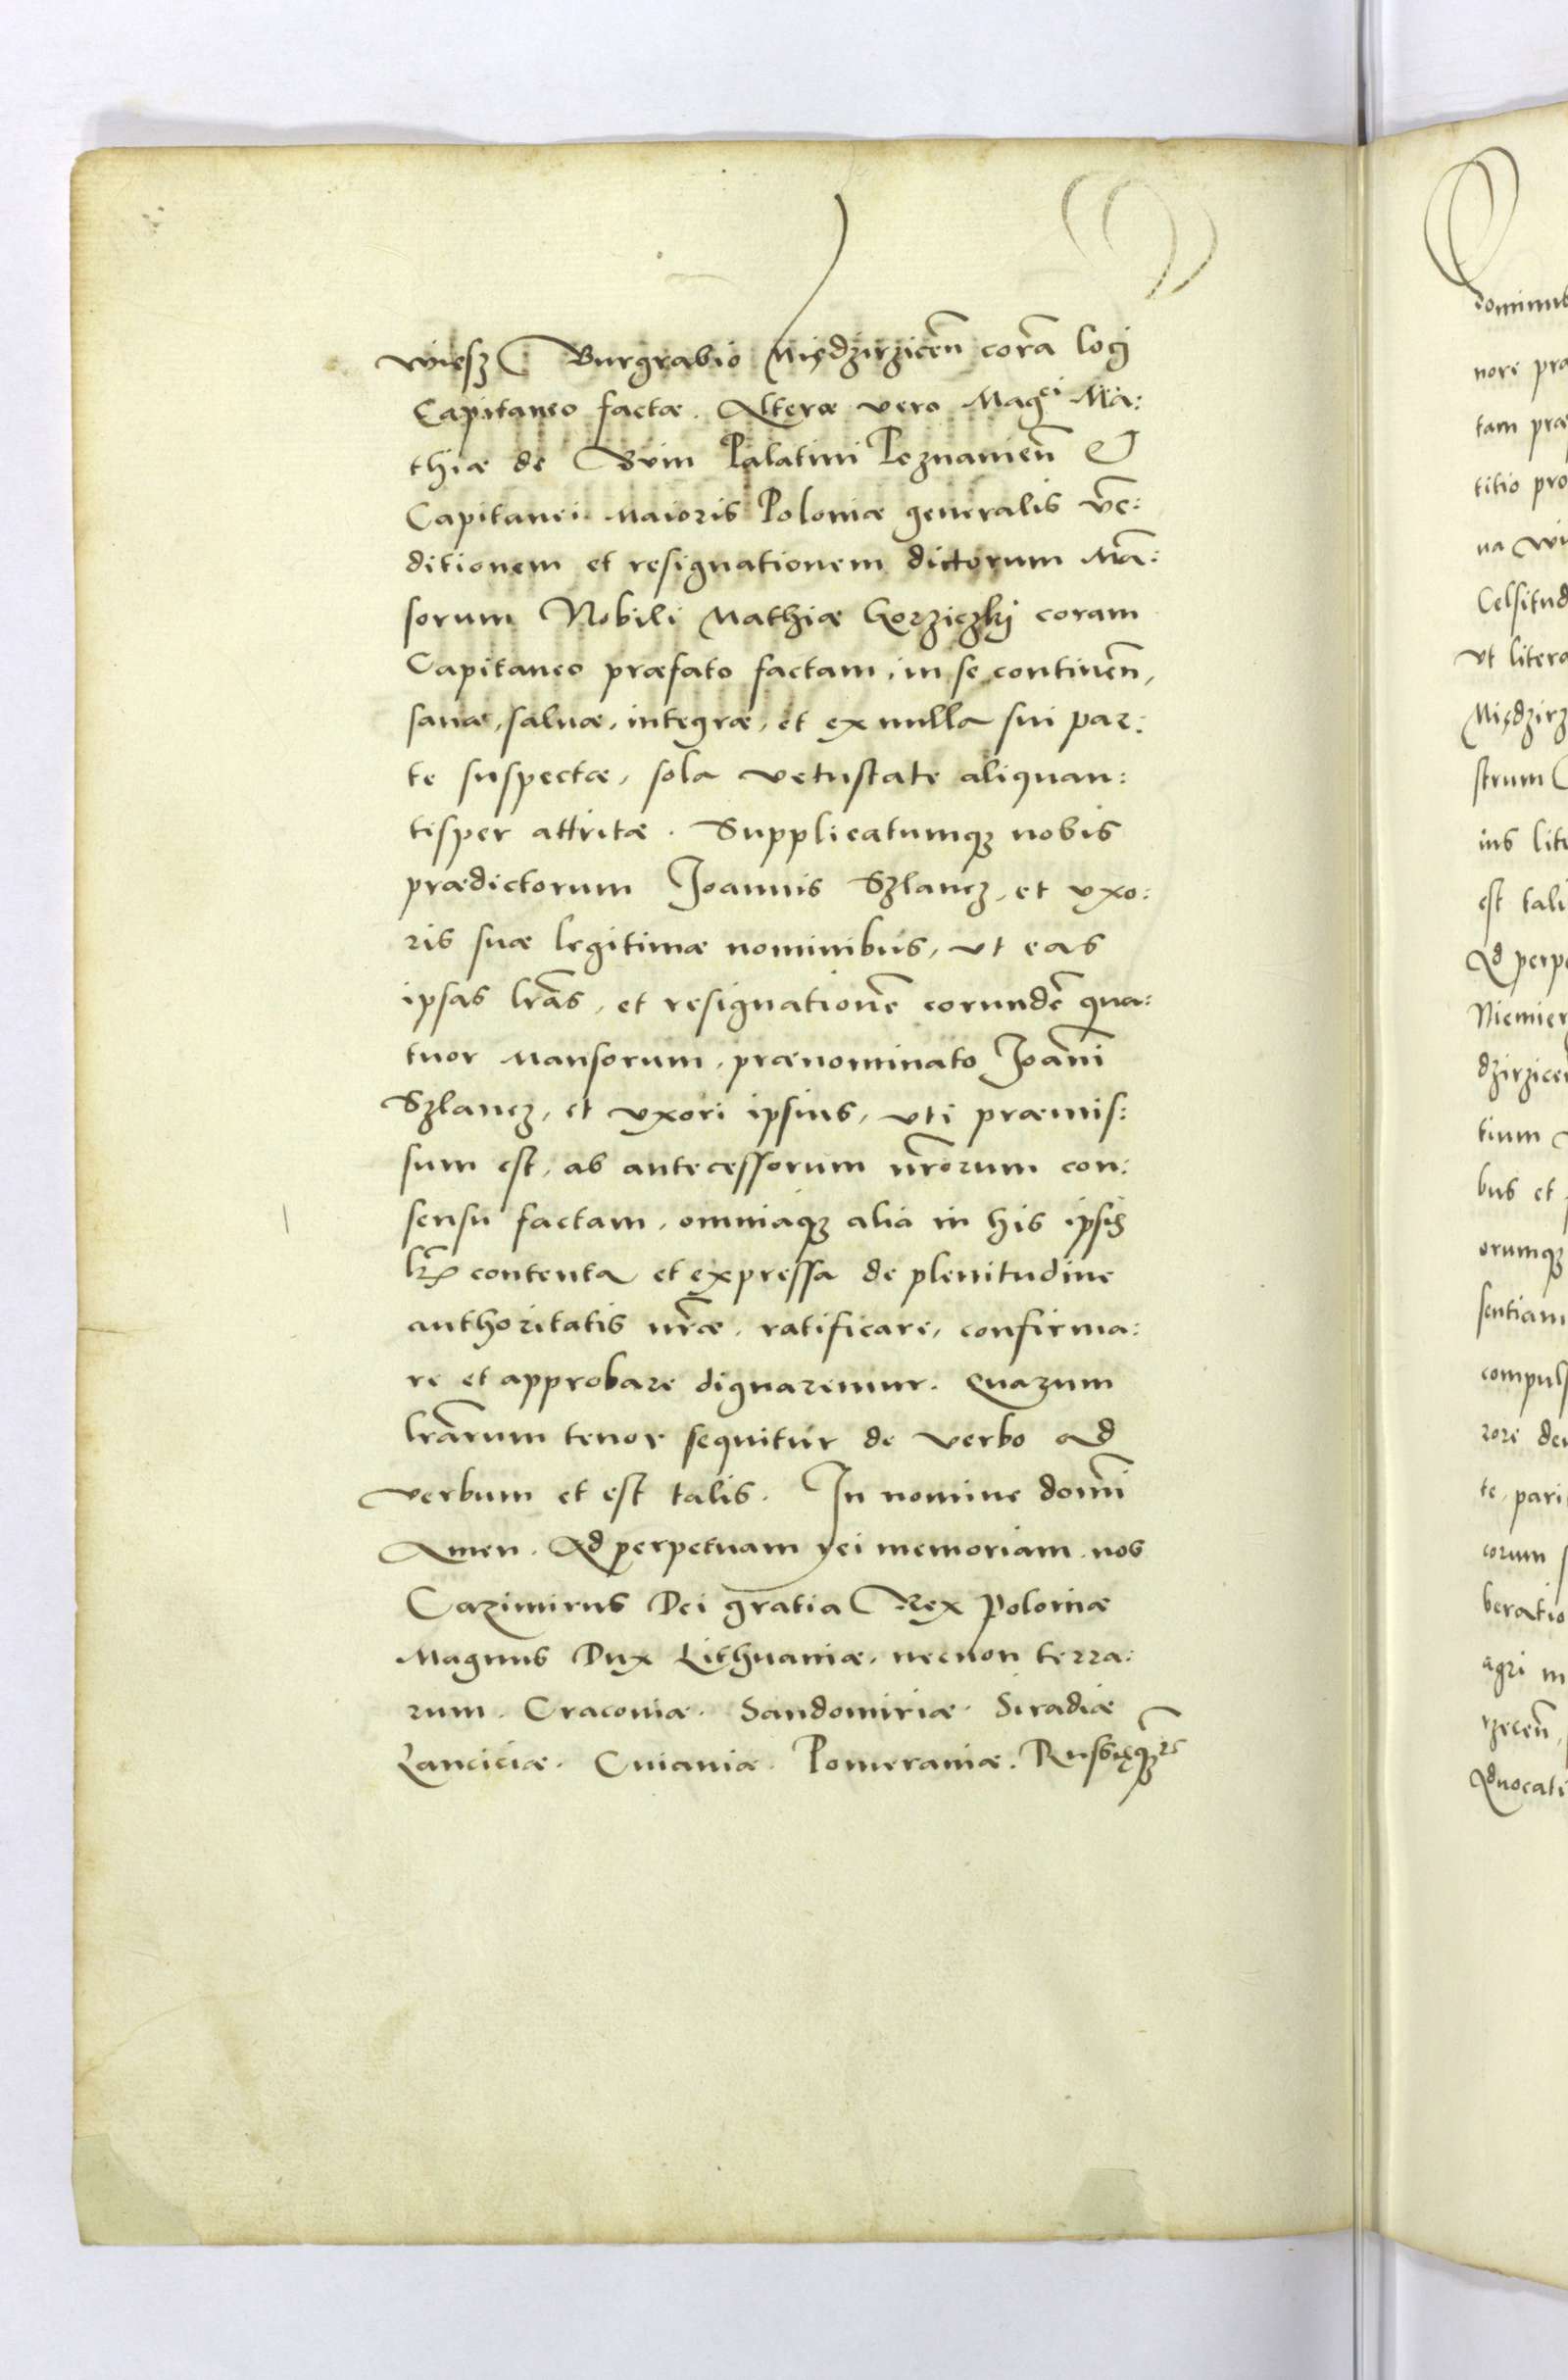 wiesz Burgrabio Międzirzicen̄ corā loci
Capitaneo factæ. Alteræ vero Magci Ma:
thiæ de Bnin Palatini Poznanien̄ Et
Capitanei Maioris Poloniæ generalis vē:
ditionem et resignationem dictorum Mā:
sorum Nobili Mathiæ Gorziczkj coram
Capitaneo præfato factam, in se continen̄,
sanæ, saluæ, integræ, et ex nulla sui par:
te suspectæ, sola vetustate aliquan:
tisper attritæ. Supplicatumq3 nobis
prædictorum Joannis Szlancz, et vxo:
ris suæ legitimæ nominibus, vt eas
ipsas lrās, et resignationē eorundē qua:
tuor Mansorum, prænominato Joāni
Szlancz, et vxori ipsius, vti præmis:
sum est, ab antecessorum nr̄orum con:
sensu factam, omniaq3 alia in his ipsis
lr̄is contenta et expressa de plenitudine
authoritatis nr̄æ, ratificare, confirma:
re et approbare dignaremur. Quarum
lrārum tenor sequitur de verbo ad
verbum et est talis. In nomine domī
Amen. Ad perpetuam rei memoriam. nos
Cazimirus Dei gratia Rex Poloniæ
Magnus Dux Lithuaniæ, necnon terra:
rum. Cracoviæ. Sandomiriæ. Siradiæ
Lanciciæ. Cuiaviæ. Pomeraniæ. Russięq3
dominub
nore pra
tam præ
titio pro
na wi
Celsitud
vt litera
Międzirz
strum
ius lite
est tali
Ad perpe
Niemier
dzirzicen
tium
bus et
orumq3
sentiam
compuls
rore de
te, pari
corum
beratio
agri m
rzecen̄,
Aduocati